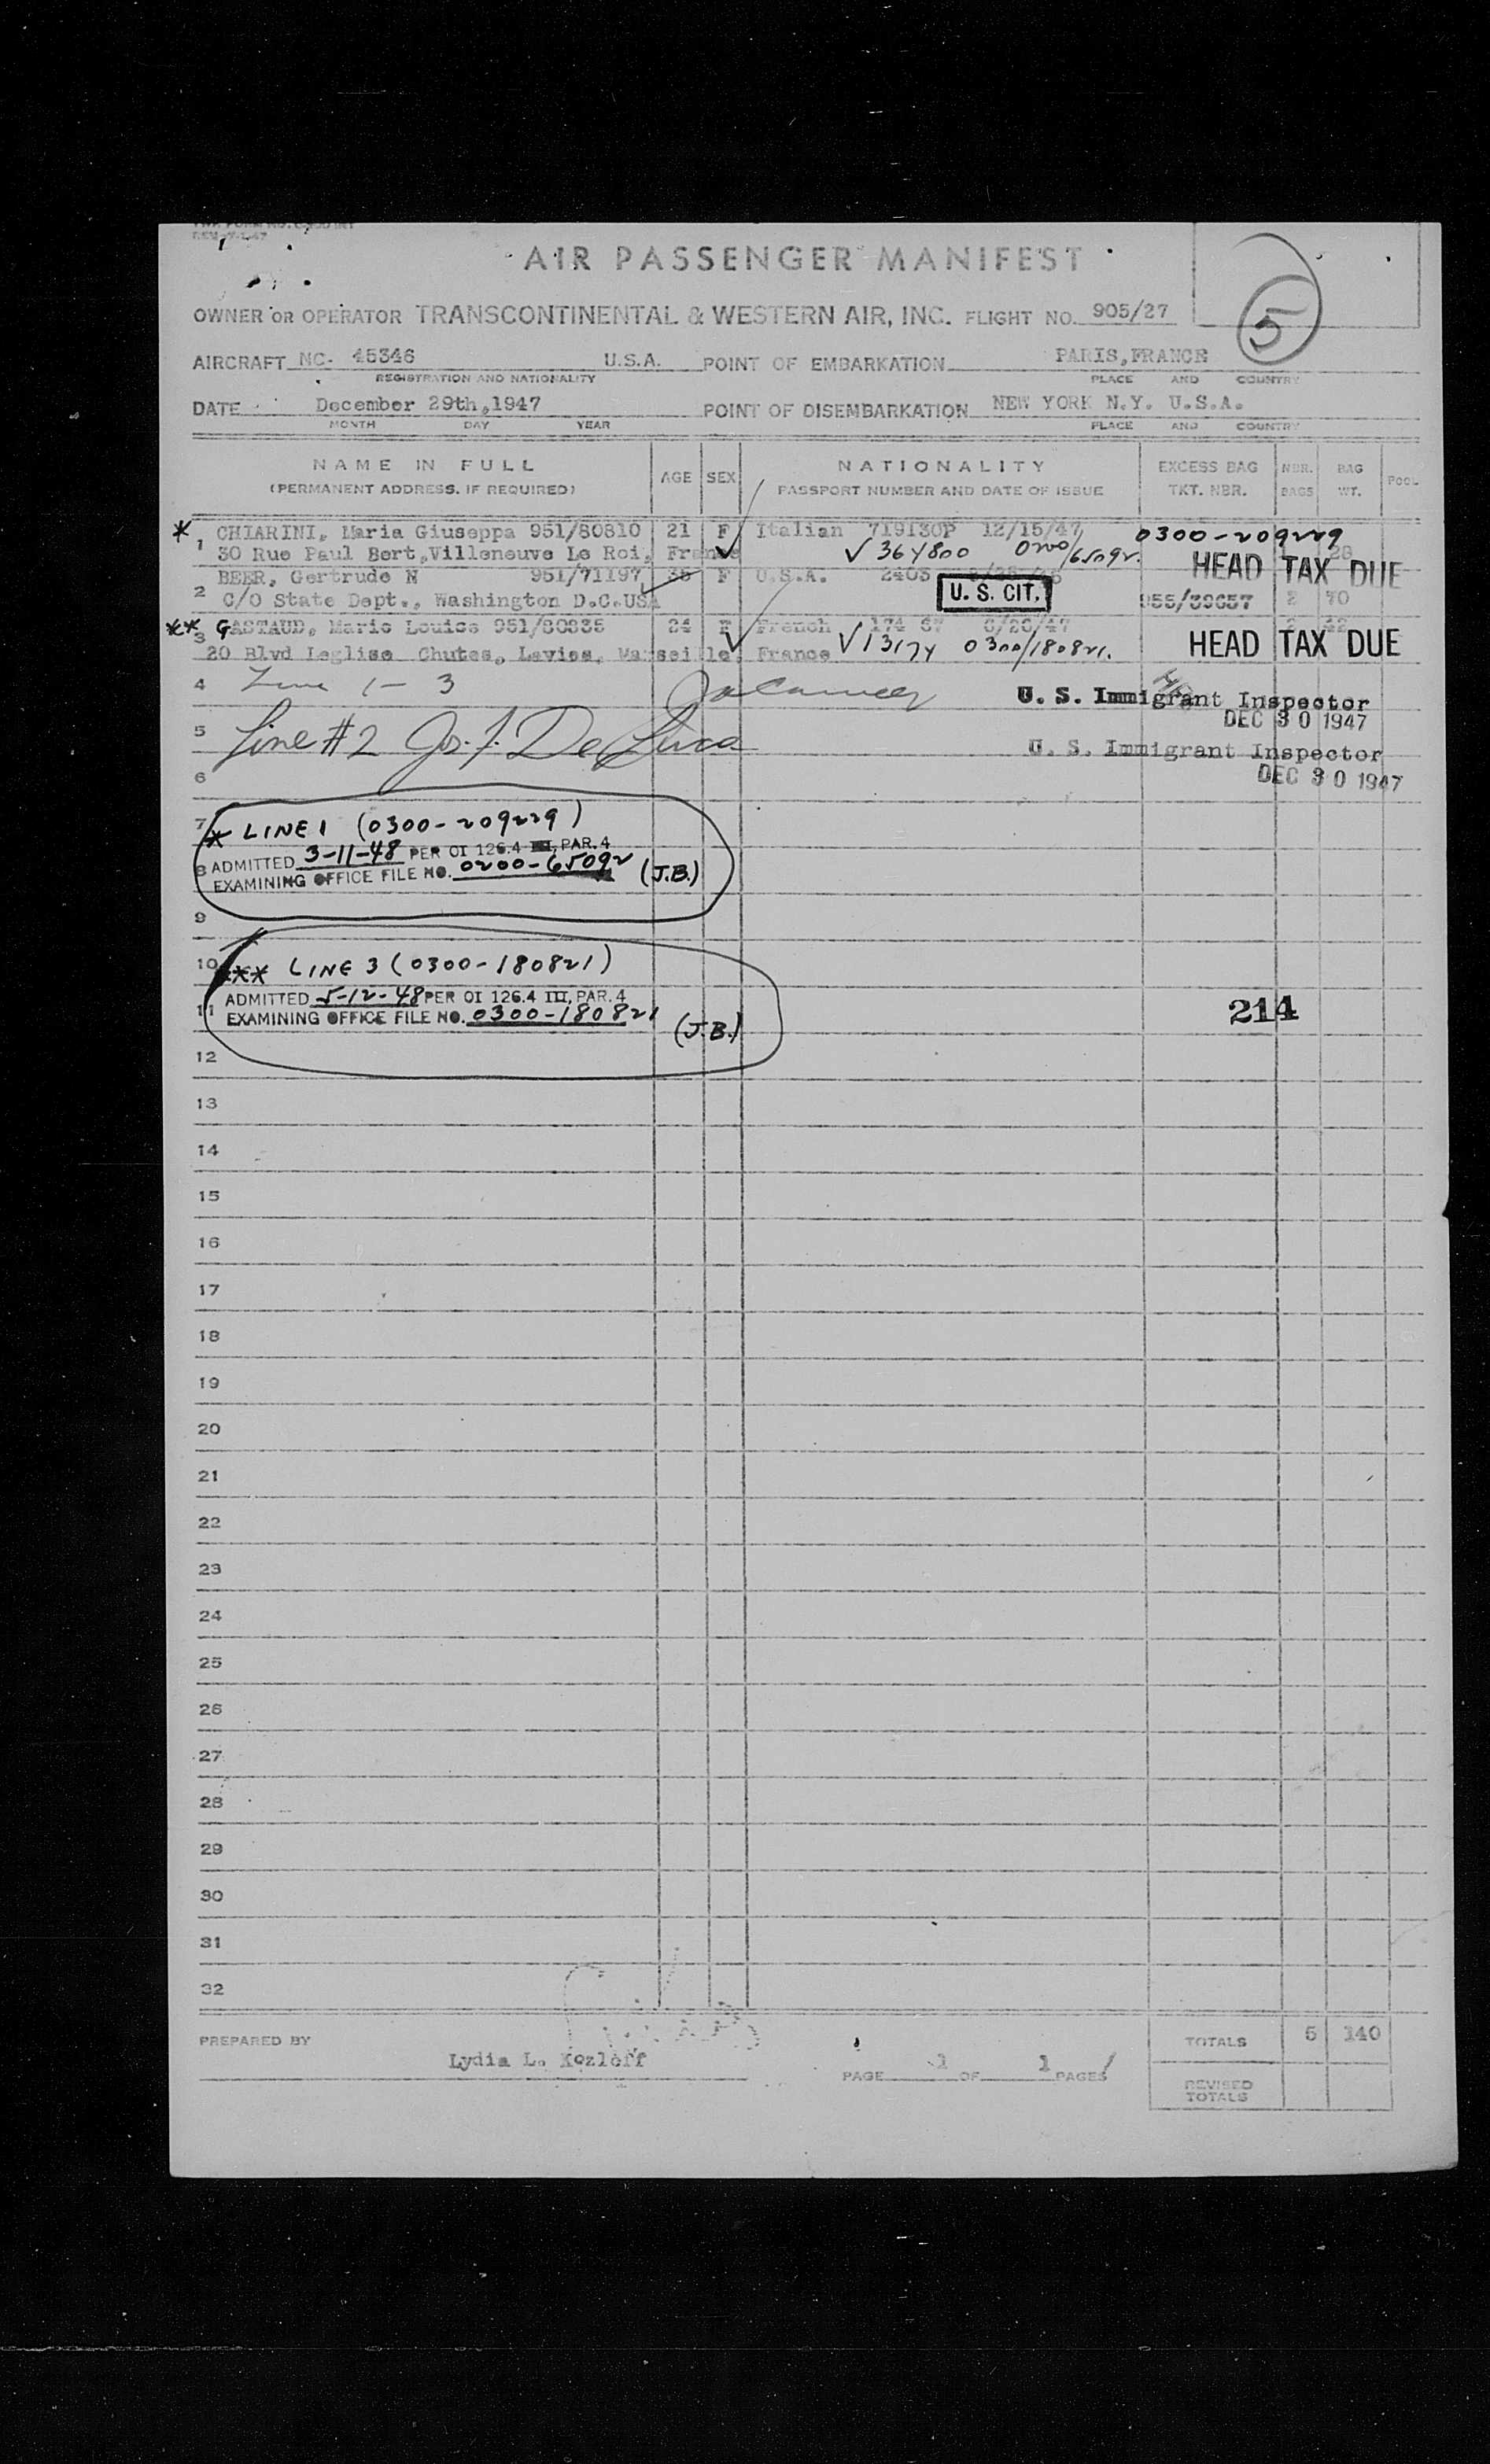 AIR PASSENGER MANIFEST
5
OWNER OR OPERATOR TRANSCONTINENTAL & WESTERN AIR, INC. FLIGHT NO. 905/27
AIRCRAFT NC- 45346 U.S.A. POINT OF EMBARKATION PARIS,FRANCE
REGISTRATION AND NATIONALITY PLACE AND COUNTRY
DATE December 29th,1947 POINT OF DISEMBARKATION NEW YORK N.Y. U.S.A.
MONTH DAY YEAR PLACE AND COUNTRY
NAME IN FULL AGE SEX NATIONALITY EXCESS BAG NBR. BAG POOL
(PERMANENT ADDRESS. IF REQUIRED) PASSPORT NUMBER AND DATE OF ISSUE TKT. NBR. BAGS WT.
* 1 CHIARINI, Maria Giuseppa 951/80810 21 F Italian 719130P 12/15/47 0300-209229
30 Rue Paul Bert,Villeneuve Le Roi, France √ 364800 0200/65092. 28
HEAD TAX DUE
2 BEER, Gertrude N 951/71197 F U.S.A. 2403
C/O State Dept., Washington D.C.USA U. S. CIT. 955/39657 2 70
** 3 GASTAUD, Marie Louise 951/80835 24 F French 174 67 42
20 Blvd Leglise Chutes, Lavies, Marseille, France √ 13174 0300/180821. HEAD TAX DUE
4 Line 1 - 3 U. S. Immigrant Inspector
DEC 30 1947
5 Line #2 Jos. F. De Luca U. S. Immigrant Inspector
6 DEC 30 1947
7 * LINE 1 (0300-209229)
8 ADMITTED 3-11-48 PER OI 126.4 III, PAR. 4
EXAMINING OFFICE FILE NO. 0200-65092 (J.B.)
9
10 ** LINE 3 (0300-180821)
11 ADMITTED 5-12-48 PER OI 126.4 III, PAR. 4
EXAMINING OFFICE FILE NO. 0300-180821 (J.B.)
214
12
13
14
15
16
17
18
19
20
21
22
23
24
25
26
27
28
29
30
31
32
PREPARED BY TOTALS 5 140
Lydia L. Kozloff
PAGE 1 OF 1 PAGES
REVISED
TOTALS